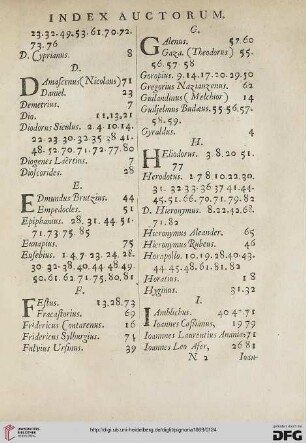 INDEX AUCTORUM.
23.32.49.53.61.70.72.
73.76
D. Cyprianus. 8
D.
DAmascenus (Nicolaus) 71
Daniel. 23
Demetrius. 7
Dio. 11.13.21
Diodorus Siculus. 2.4.10.14.
22.23.30.32.35.38.41.
48.52.70.71.72.77.80
Diogenes Laërtius. 7
Dioscorides. 28
E.
EDmundus Brutzius. 44
Empedocles. 51
Epiphanius. 28.31.44.51.
71.73.75.85
Eunapius. 75
Eusebius. 1.4.7.23.24.28.
30.32.38.40.44.48.49.
50.61.62.71.75.80.81
F.
FEstus. 13.28.73
Fracastorius. 69
Fridericus Contarenus. 16
Fridericus Sylburgius. 74
Fulvius Ursinus. 39
G.
GAlenus. 57.60
Gaza. (Theodorus) 55.
56.57.58
Goropius. 9.14.17.20.29.50
Gregorius Nazianzenus. 62
Guilandinus (Melchior) 14
Guilielmus Budæus. 55.56.57.
58.59.
Gyraldus. 4
H.
HEliodorus. 3.8.20.51.
77
Herodotus. 1.7.8.10.22.30.
31.32.33.36.37.41.44.
45.51.66.70.71.79.82
D. Hieronymus. 8.22.42.68.
71.82
Hieronymus Aleander. 65
Hieronymus Rubeus. 46
Horapollo. 10.19.28.40.43.
44.45.48.61.81.82
Horatius. 18
Hyginus. 31.32
I.
IAmblichus. 40.47.71
Ioannes Cassianus, 19.79
Ioannes Laurentius Anania 71
Ioannes Leo Afer, 26.81
N 2 Ioan-
http://digi.ub.uni-heidelberg.de/diglit/pignoria1669/0134
UNIVERSITÄTS-
BIBLIOTHEK
HEIDELBERG
gefördert durch die
DFG